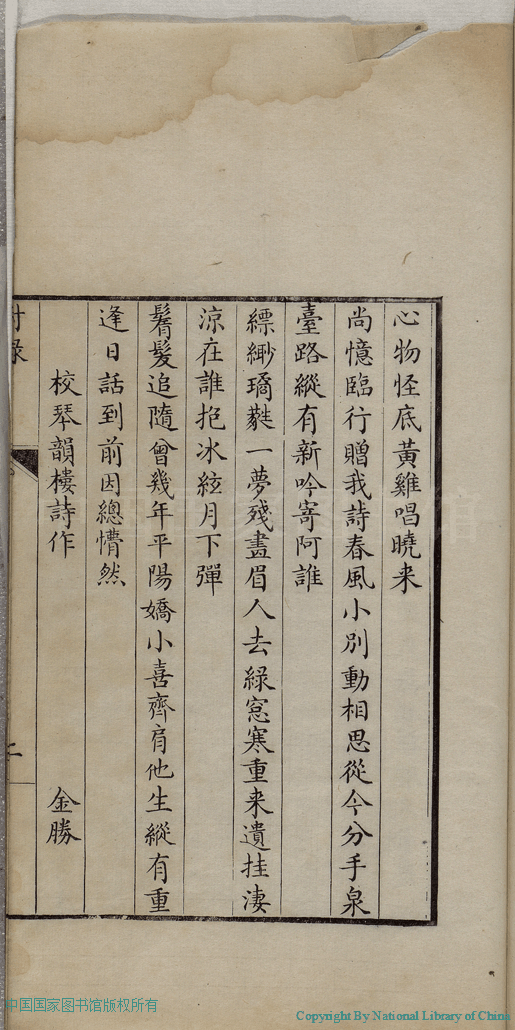 心物怪底黃雞唱曉来
尚憶臨行贈我詩春風小別動相思從今分手泉
臺路縱有新吟寄阿誰
縹緲璚蕤一夢殘畫眉人去綠窓寒重来遺挂淒
涼在誰抱冰絃月下彈
鬌髮追隨曾幾年平陽嬌小喜齊肩他生縱有重
逢日話到前因總懵然
校琴韻樓詩作 金勝
附錄
二
中国国家图书馆版权所有
Copyright By National Library of China